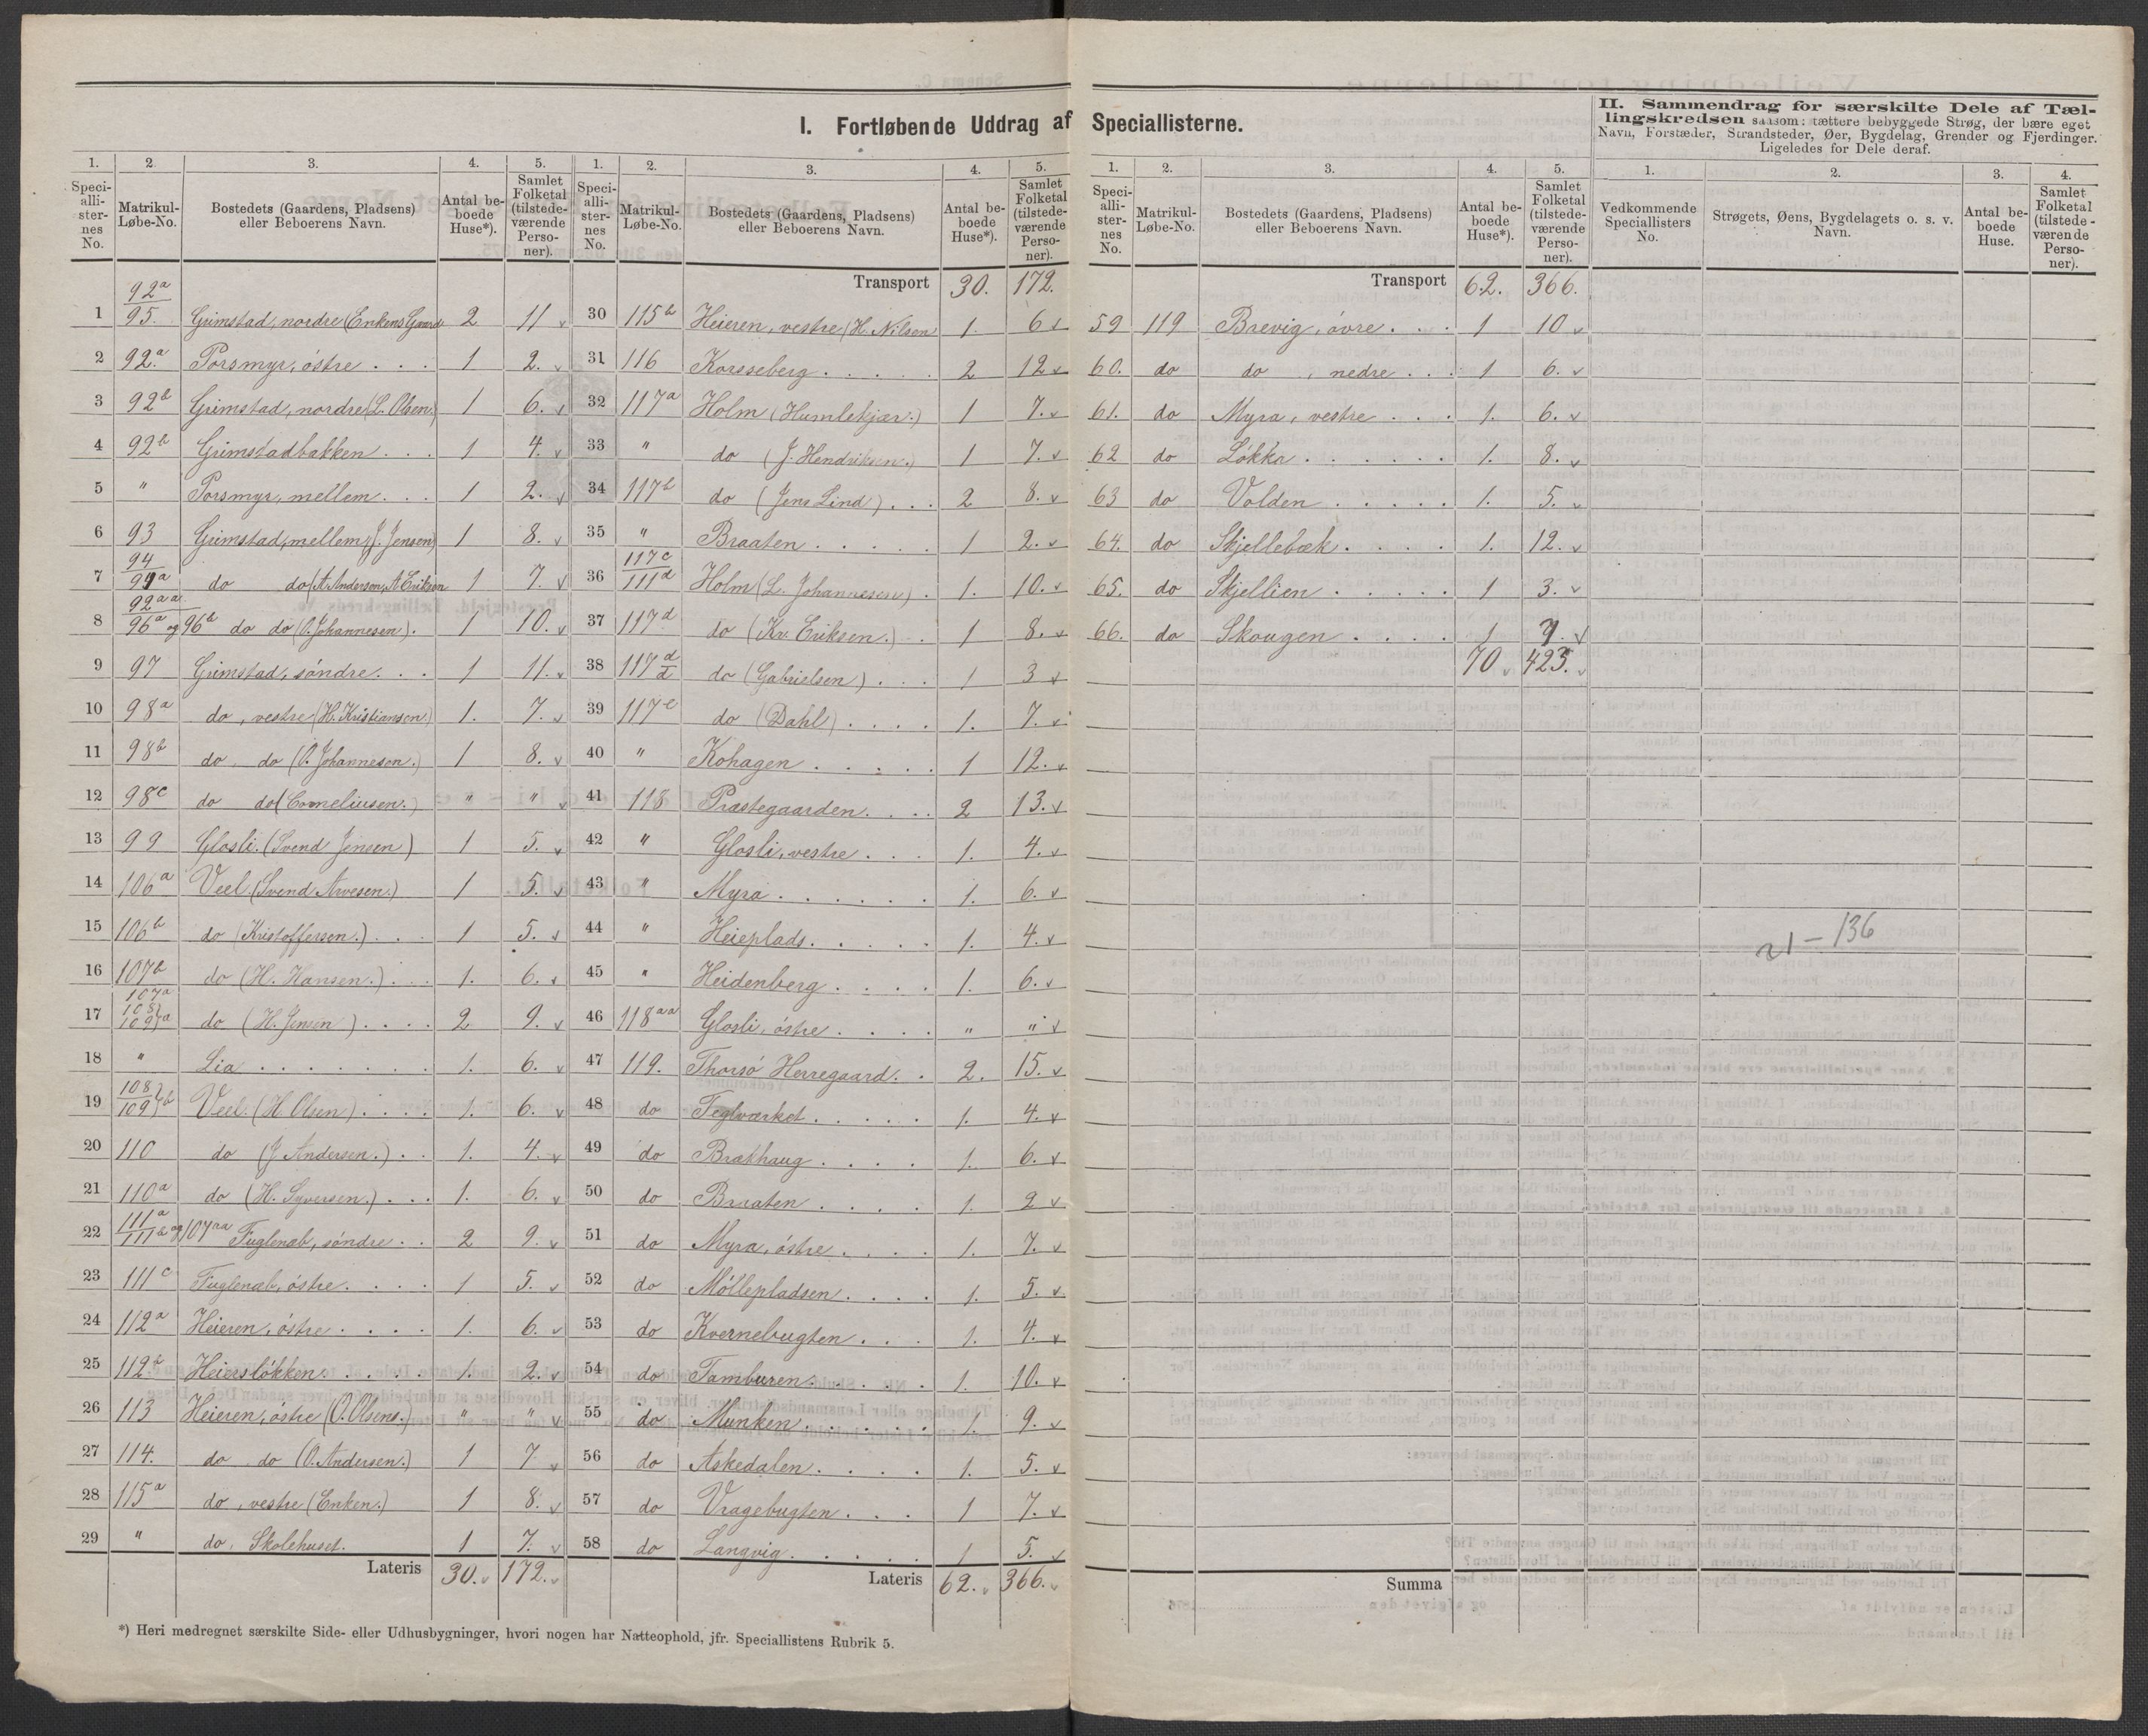 I. Fortløbende Uddrag af Speciallisterne.
II. Sammendrag for særskilte Dele af Tæl-
lingskredsen saasom: tættere bebyggede Strøg, der bære eget
Navn, Forstæder, Strandsteder, Øer, Bygdelag, Grender og Fjerdinger.
Ligeledes for Dele deraf.
1. 2 3. 4. 5.
Speci-alli-ster-nes No. Matrikul-Løbe-No. Bostedets (Gaardens, Pladsens) eller Beboerens Navn. Antal be-boede Huse*). Samlet Folketal (tilstede-værende Perso-ner).
1 92a/95. Grimstad, nordre (Enkens Gaard 2 11 v
2 92a. Porsmyr, östre . . . 1 2. v
3 92b Grimstad, nordre (L. Olsen.) 1 6. v
4 92b Grimstadbakken . . . 1 4. v
5 " Porsmyr, mellem . . . 1 2. v
6 93 Grimstad, mellem (J. Jensen) 1 8. v
7 94/91a do do (A. Andersen, A Eriksen 1 7. v
8 92aa/96a og 96b do do (O. Johannesen). 1 10. v
9 97 Grimstad, söndre . . . 1 11. v
10 98a do, vestre (H. Kristiansen) 1. 7. v
11 98b do. do (O. Johannesen.) 1 8. v
12 98c do do (Corneliusen.) " " v
13 99 Glosli. (Svend Jensen) 1 5. v
14 106a Veel (Svend Arvesen.) 1 5. v
15 106b do (Kristoffersen.) . . . 1 5. v
16 107b do (H. Hansen.) . . . 1. 6. v
17 107a 108/109}a do (H. Jensen) . . . . 2 9. v
18 " Lia . . . . . . . 1. 6. v
19 108/109}b Veel. (H Olsen) . . . . 1. 6. v
20 110 do (J Andersen.) . . 1. 4. v
21 110a do (H. Syversen.) . . . 1. 6. v
22 111a/111b og 107aa Fuglenab, söndre . . 2 9. v
23 111c Fuglenab, östre . . . . 1 5. v
24 112a Heieren, östre . . . . 1. 6. v
25 112b Heierslökken . . . . . 1. 2. v
26 113 Heieren, östre (O. Olsens.) " " v
27 114. do do (O. Andersen.) 1 7 v
28 115a do, vestre (Enken.) 1 8. v
29 " do. Skolehuset. 1 7. v
Lateris 30. v 172. v
1. 2. 3. 4. 5.
Speci-alli-ster-nes No. Matrikul-Løbe-No. Bostedets (Gaardens, Pladsens) eller Beboerens Navn. Antal be-boede Huse*). Samlet Folketal (tilstede-værende Perso-ner).
Transport 30. 172.
30 115b Heieren, vestre (H. Nilsen 1. 6 v
31 116 Korsseberg . . . . . 2 12 v
32 117a Holm (Humlekjær.) 1 7. v
33 " do (J. Hendriksen.) 1 7. v
34 117b do (Jens Lind) . . . 2 8. v
35 " Braaten . . . . . 1 2. v
36 117c/111d Holm (L. Johannesen) . 1. 10. v
37 117d do (Kr. Eriksen.) . 1 8. v
38 117d/d do (Gabrielsen) . . . 1 3 v
39 117e do (Dahl) . . . . 1. 7. v
40 " Kohagen . . . . . 1 12. v
41 118 Præstegaarden . . . . 2 13. v
42 " Glosli, vestre . . . 1. 4. v
43 " Myra . . . . . . 1. 6. v
44 " Heieplads . . . . . 1. 4. v
45 " Heidenberg . . . . 1. 6. v
46 118aa Glosli, östre . . . . " " v
47 119. Thorsö Herregaard. . 2. 15. v
48 do Teglværket . . . . . 1. 4. v
49 do Brækhaug . . . . 1. 6. v
50 do Braaten . . . . . 1. 2 v
51 do Myra, östre . . . . 1. 7. v
52 do Möllepladsen . . . . 1. 5. v
53 do Kvernebugten . . . 1. 4. v
54 do Tamburen . . . . . 1. 10. v
55 do Munken . . . . . 1. 9. v
56 do Askedalen . . . . 1. 5. v
57 do Vragebugten . . . 1 7. v
58 do Langvig . . . . . 1 5. v
Lateris 62. v 366. v
1. 2. 3. 4. 5.
Speci-alli-ster-nes No. Matrikul-Løbe-No. Bostedets (Gaardens, Pladsens) eller Beboerens Navn. Antal be-boede Huse*). Samlet Folketal (tilstede-værende Perso-ner).
Transport 62. 366.
59 119 Brevig, övre . . . 1 10 v
60. do do, nedre . . . 1 6. v
61. do Myra, vestre . . . 1. 6. v
62 do Lökka . . . . . . 1. 8. v
63 do Volden . . . . . 1. 5. v
64. do Skjellebæk . . . . 1. 12. v
65. do Skjellien . . . . . 1 3. v
66. do Skougen . . . . 1 7. v
70 v 423. v
Summa
1. 2. 3. 4.
Vedkommende Speciallisters No. Strøgets, Øens, Bygdelagets o. s. v. Navn. Antal be-boede Huse. Samlet Folketal (tilstede-værende Perso-ner).
21 — 136
*) Heri medregnet særskilte Side- eller Udhusbygninger, hvori nogen har Natteophold, jfr. Speciallistens Rubrik 5.